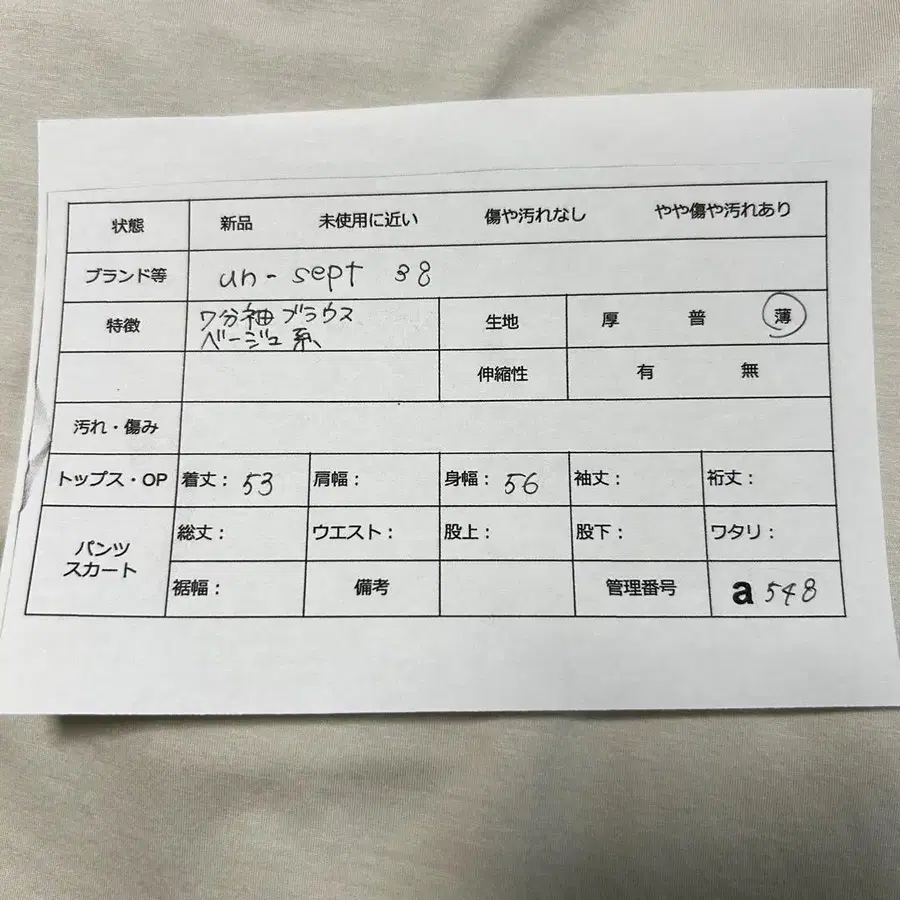 状態 新品 未使用に近い 傷や汚れなし やや傷や汚れあり
ブランド等 un-sept 38
特徴 7分袖ブラウス
ベージュ系、
生地 厚 普 薄
伸縮性 有 無
汚れ・傷み
トップス・OP 着丈: 53 肩幅: 身幅: 56 袖丈: 裄丈:
パンツ
スカート
総丈: ウエスト: 股上: 股下: ワタリ:
裾幅: 備考 管理番号 a 548